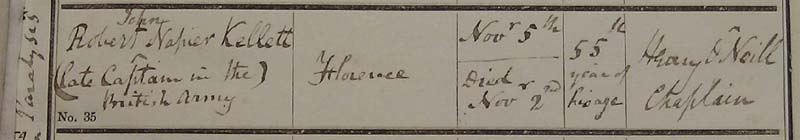 Paralysis
John
Robert Napier Kellett
(late Captain in the)
British Army
No. 35
Florence
Novr 5th
Died
Novr 2nd
55th
year of
his age
Henry O'Neill
Chaplain